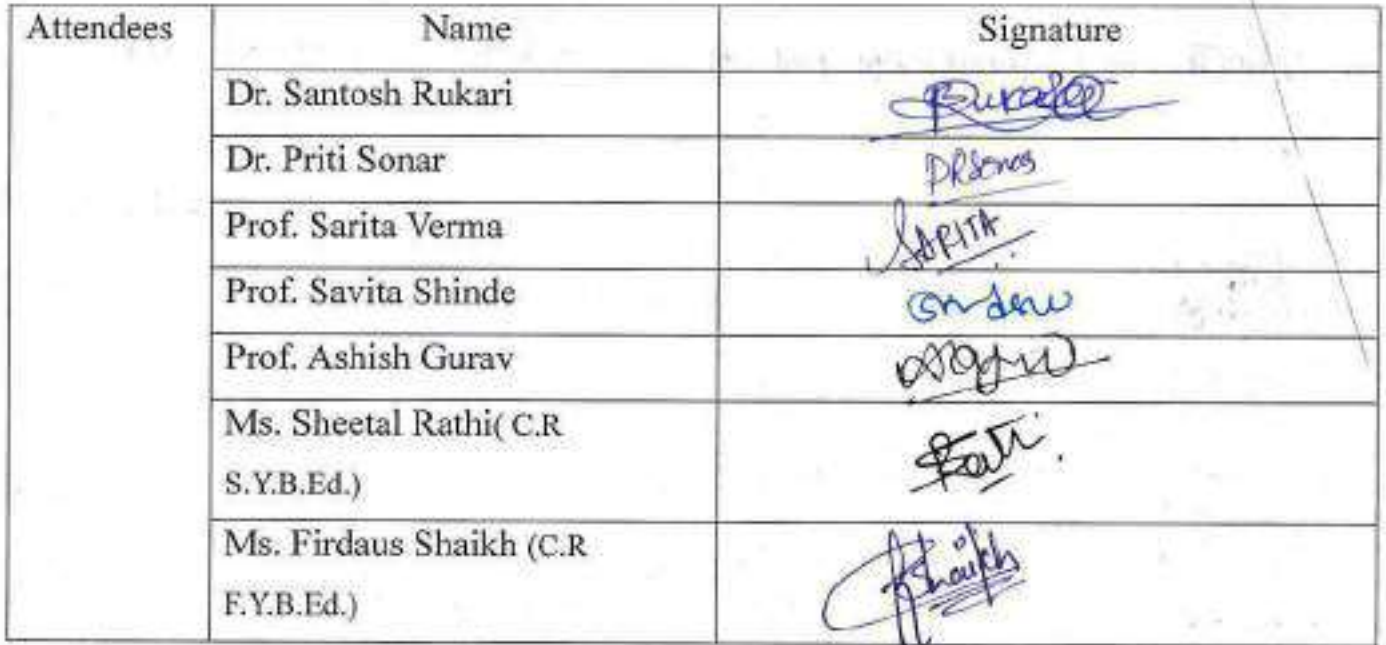 Attendees Name Signature
Dr. Santosh Rukari
Dr. Priti Sonar
Prof. Sarita Verma SARITA
Prof. Savita Shinde
Prof. Ashish Gurav
Ms. Sheetal Rathi( C.R
S.Y.B.Ed.)
Ms. Firdaus Shaikh (C.R Shaikh
F.Y.B.Ed.)